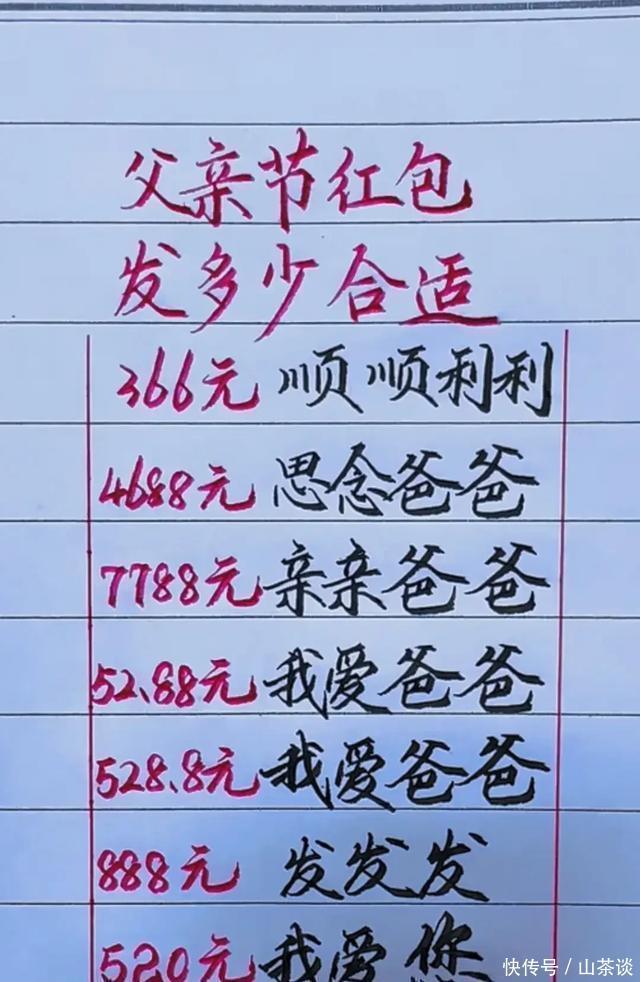 父亲节红包
发多少合适
366元 顺顺利利
4688元 思念爸爸
7788元 亲亲爸爸
52.88元 我爱爸爸
528.8元 我爱爸爸
888元 发发发
520元 我爱您
快传号/山茶谈